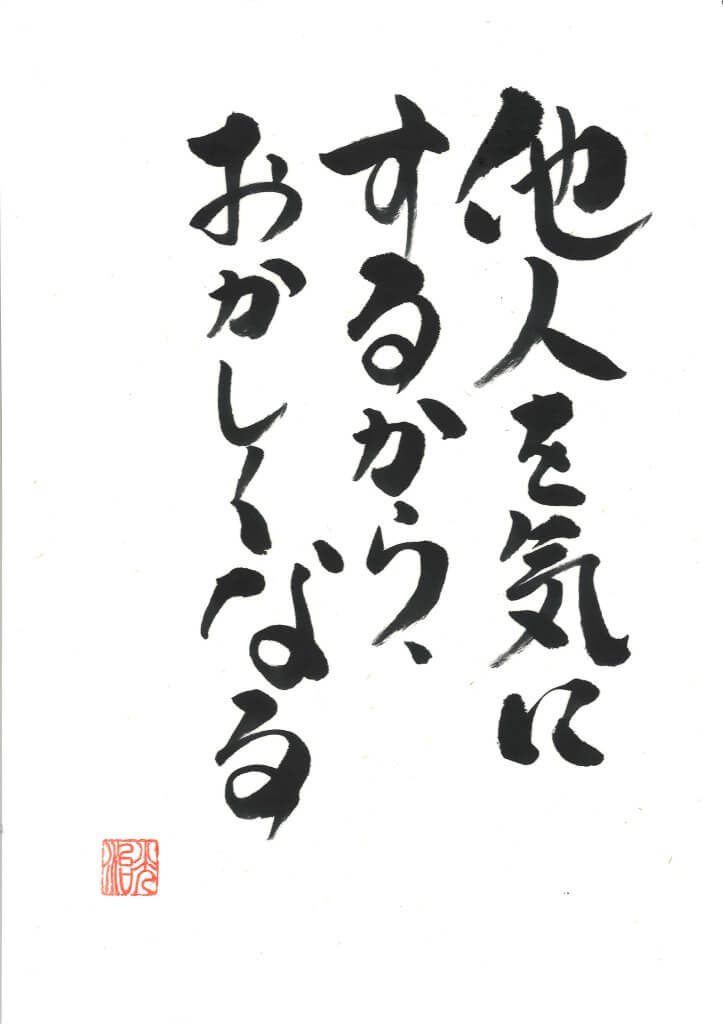 他人を気に
するから、
おかしくなる